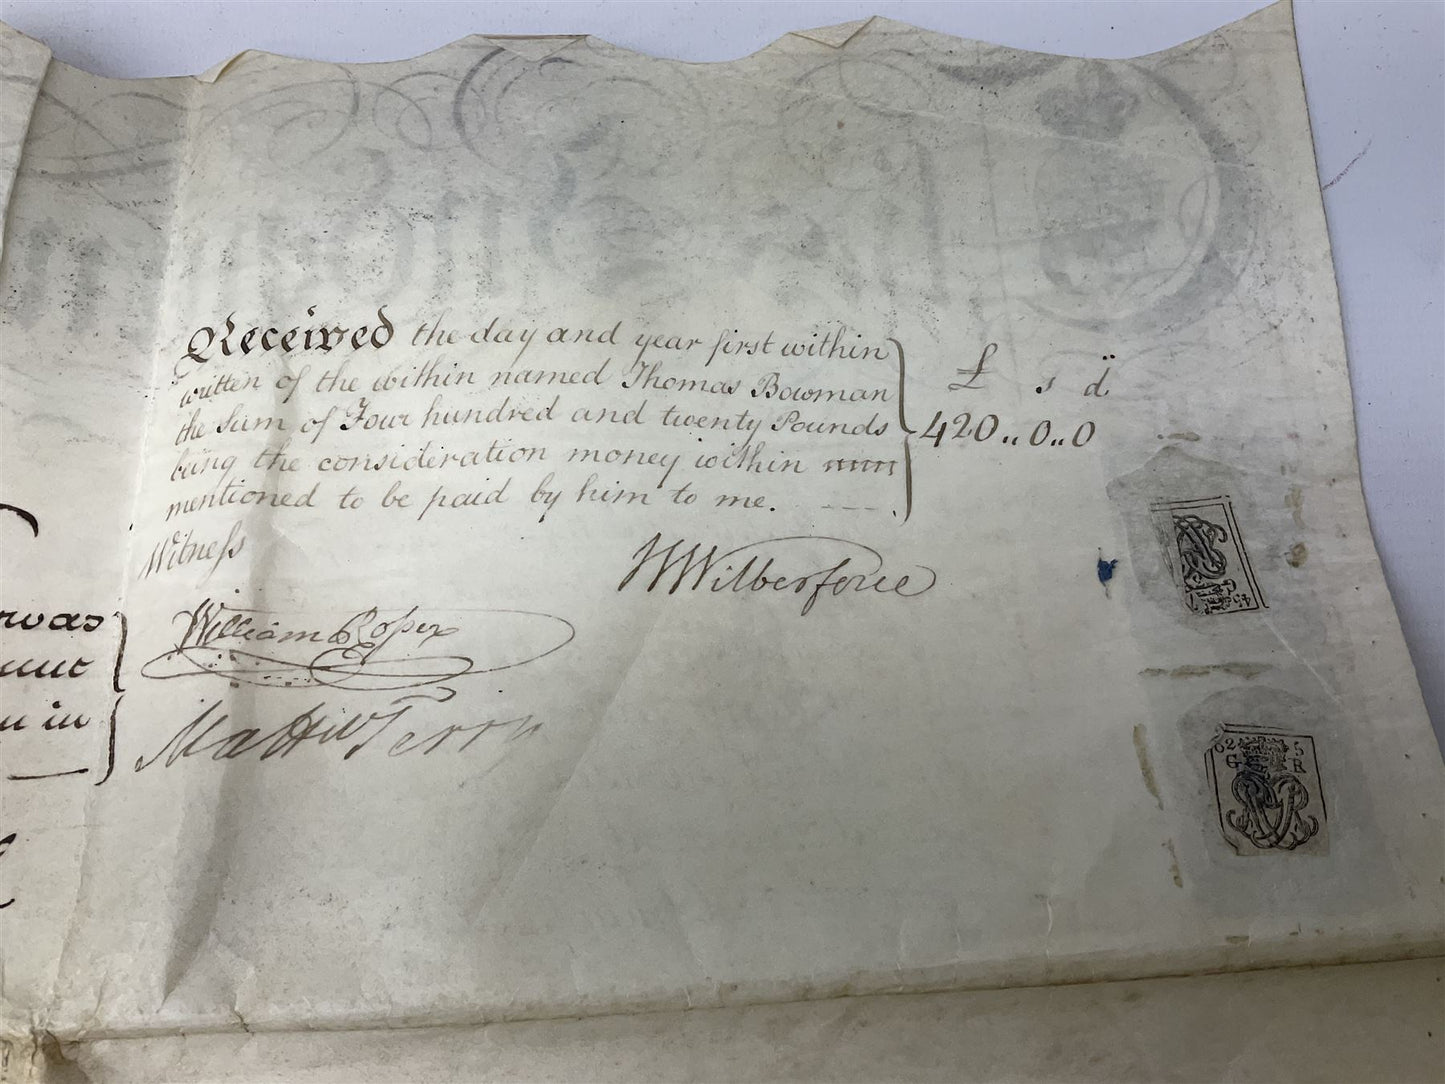 Received the day and year first within
written of the within named Thomas Bowman
the Sum of Four hundred and twenty Pounds
being the consideration money within
mentioned to be paid by him to me.
£ s d
420..0..0
Witness
W Wilberforce
William Roper
Matthw Terry
nunt
u in
62 5
G R